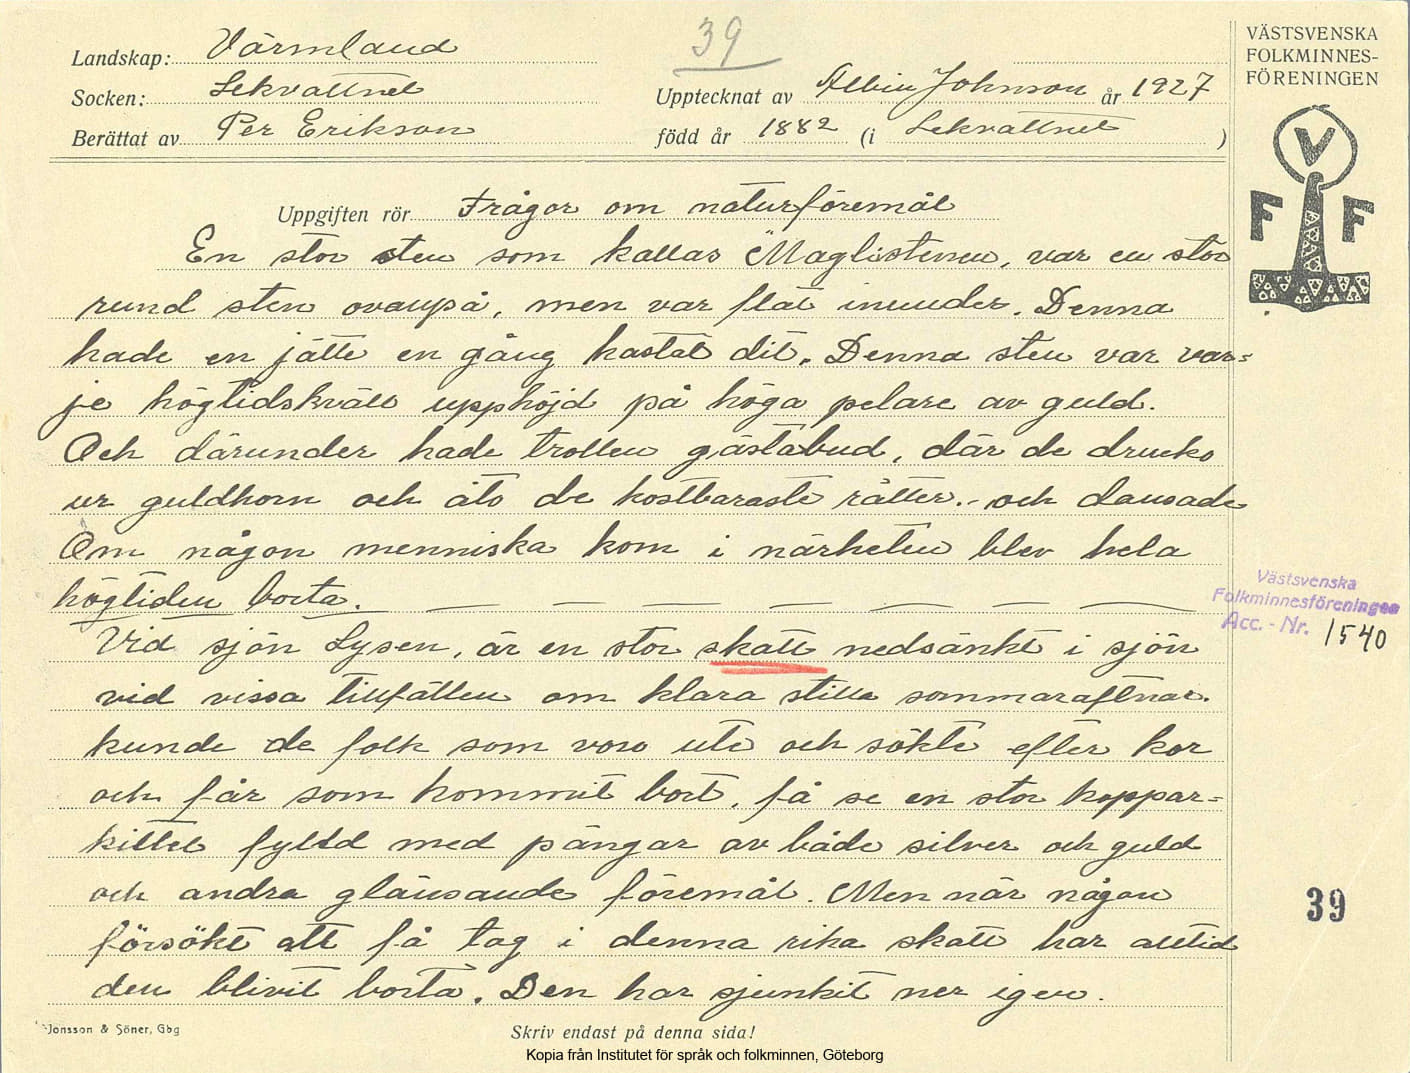 39
Landskap: Värmland
Socken: Lekvattnet
Upptecknat av Albin Johnson år 1927
Berättat av Per Erikson
född år 1882 (i Lekvattnet )
VÄSTSVENSKA
FOLKMINNES-
FÖRENINGEN
V
F F
Uppgiften rör Frågor om naturföremål
En stor sten som kallas Maglistenen, var en stor
rund sten ovanpå, men var flat inunder. Denna
hade en jätte en gång kastat dit. Denna sten var var=
je högtidskväll upphöjd på höga pelare av guld.
Och därunder hade trollen gästabud, där de drucko
ur guldhorn och åto de kostbaraste rätter.- och dansade
Om någon menniska kom i närheten blev hela
högtiden borta.
Vid sjön Lysen, är en stor skatt nedsänkt i sjön
vid vissa tillfällen om klara stilla sommaraftnar.
kunde de folk som voro ute och sökte efter kor
och får som kommit bort, få se en stor koppar=
kittel fylld med pängar av både silver och guld
och andra glänsande föremål. Men när någon
försökt att få tag i denna rika skatt har alltid
den blivit borta. Den har sjunkit ner igen.
Västsvenska
Folkminnesföreningen
Acc. - Nr. 1540
39
Jonsson & Söner, Gbg
Skriv endast på denna sida!
Kopia från Institutet för språk och folkminnen, Göteborg